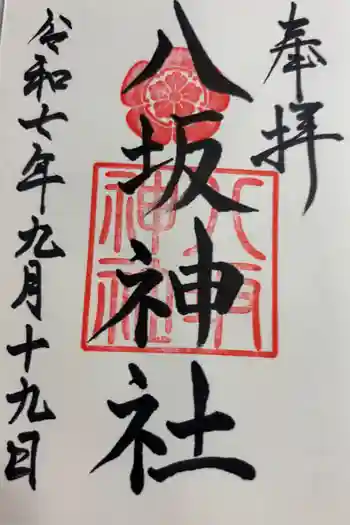 奉拝
八坂神社
令和七年九月十九日
八坂神社